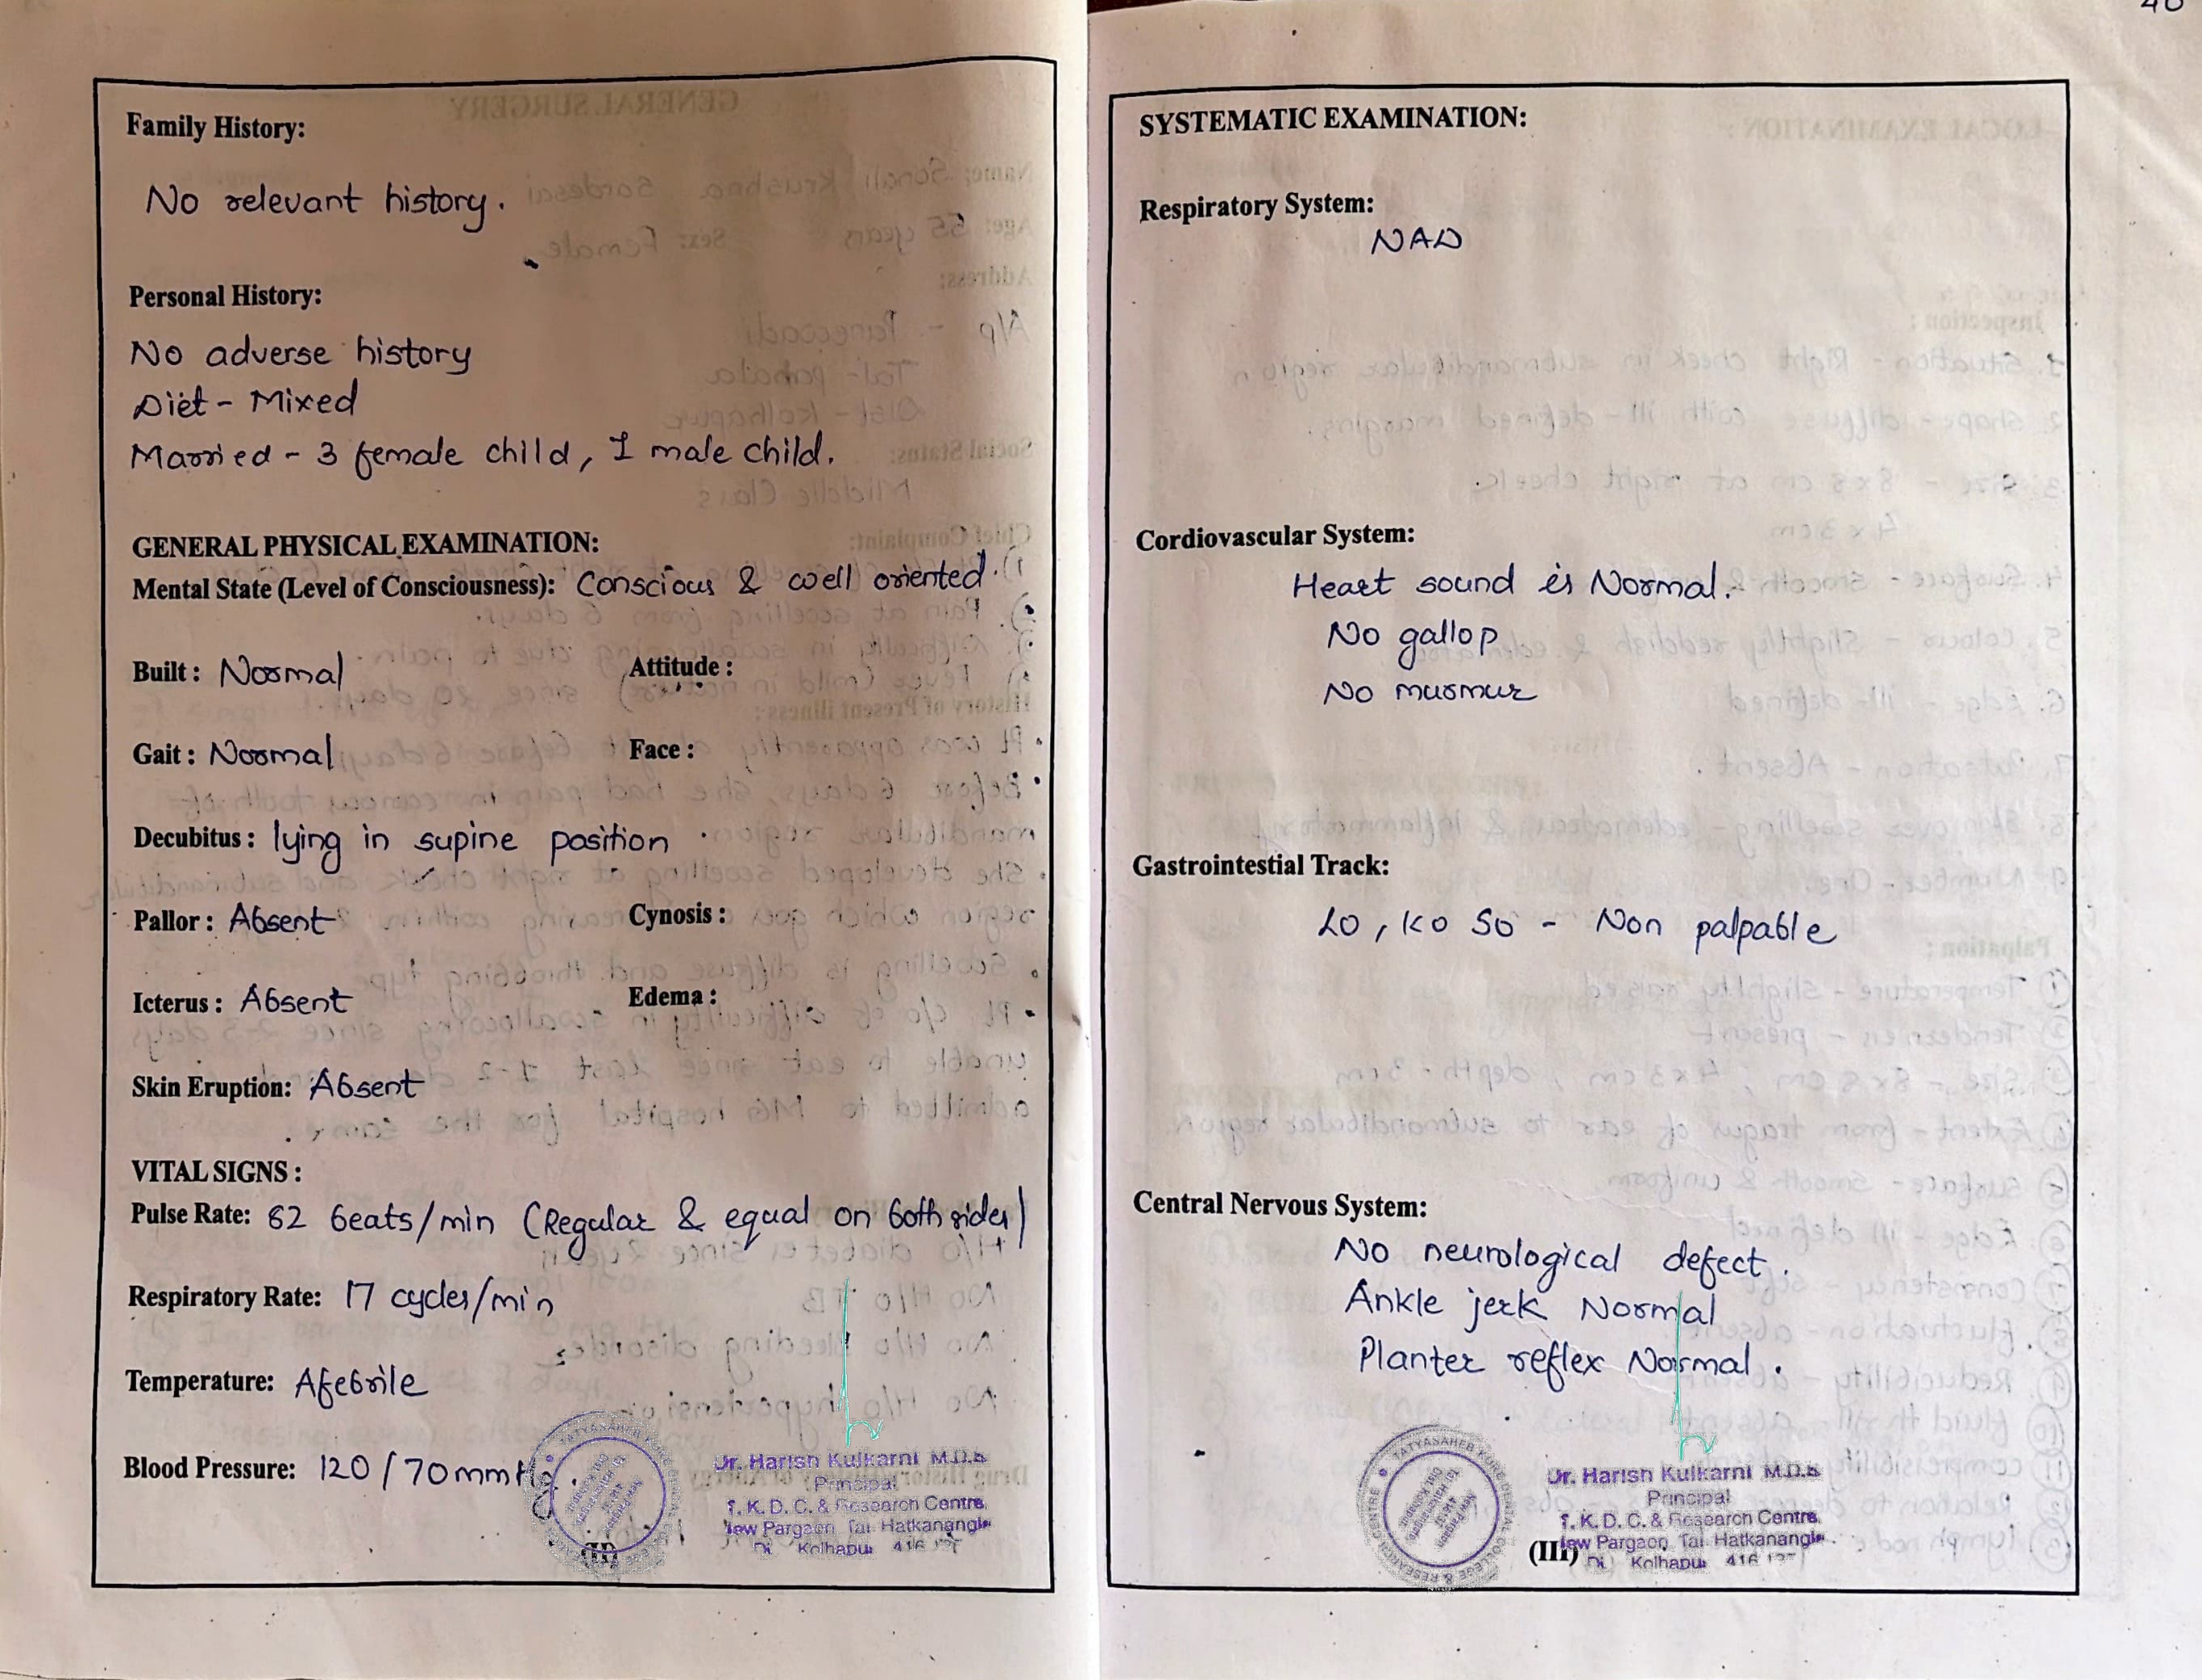 40
Family History:
No relevant history.
Personal History:
No adverse history
Diet - Mixed
Married - 3 female child, 1 male child.
GENERAL PHYSICAL EXAMINATION:
Mental State (Level of Consciousness): Conscious & well oriented.
Built : Normal Attitude :
Gait : Normal Face :
Decubitus : lying in supine position
Pallor : Absent Cynosis :
Icterus : Absent Edema :
Skin Eruption: Absent
VITAL SIGNS :
Pulse Rate: 82 beats/min (Regular & equal on both sides)
Respiratory Rate: 17 cycles/min
Temperature: Afebrile
Blood Pressure: 120/70mmHg.
Dr. Harish Kulkarni M.D.S
Principal
T. K. D. C. & Research Centre,
New Pargaon Tal Hatkanangle
Di. Kolhapur 416
(II)
SYSTEMATIC EXAMINATION:
Respiratory System:
NAD
Cordiovascular System:
Heart sound is Normal.
No gallop
No murmur
Gastrointestial Track:
Lo, Ko So - Non palpable
Central Nervous System:
No neurological defect.
Ankle jerk Normal
Planter reflex Normal.
TATYASAHEB KORE DENTAL COLLEGE & RESEARCH CENTRE
Dr. Harish Kulkarni M.D.S
Principal
T. K. D. C. & Research Centre,
New Pargaon, Tal Hatkanangle
Di. Kolhapur 416 137
(III)